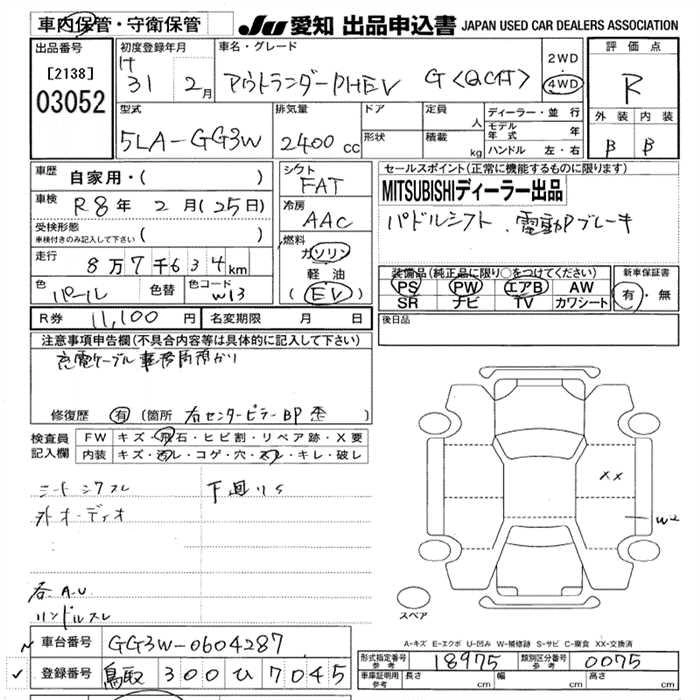 車内保管・守衛保管
JU 愛知 出品申込書 JAPAN USED CAR DEALERS ASSOCIATION
出品番号
[2138]
03052
初度登録年月
31 2月
車名・グレード
アウトランダーPHEV G〈QC付〉
2WD
・
4WD
評価点
R
外装 内装
B B
型式
5LA-GG3W
排気量
2400 cc
ドア
形状
定員
人
積載
kg
ディーラー・並行
モデル年式 年
ハンドル 左・右
車歴
自家用・( )
車検
R8年 2月(25日)
受検形態
※検付きのみ記入して下さい ( )
走行
8万7千634km
色
パール
色替
色コード
W13
シフト
FAT
冷房
AAC
燃料
ガソリン
軽油
(EV)
セールスポイント(正常に機能するものに限ります)
MITSUBISHIディーラー出品
パドルシフト、電動Pブレーキ
装備品(純正品に限り○をつけてください)
PS PW エアB AW
SR ナビ TV カワシート
新車保証書
有・無
R券 11,100円 名変期限 月 日
後日品
注意事項申告欄(不具合内容等は具体的に記入して下さい)
充電ケーブル事務局預かり
修復歴 有 (箇所 右センターピラーBP歪 )
検査員
記入欄
FW キズ・飛石・ヒビ割・リペア跡・X要
内装 キズ・汚レ・コゲ・穴・スレ・キレ・破レ
シートシワスレ
下回リS
外オーディオ
各A.U
ハンドルスレ
XX
W2
スペア
A-キズ E-エクボ U-凹み W-補修跡 S-サビ C-腐食 XX-交換済
車台番号 GG3W-0604287
登録番号 鳥取 300 ひ 7045
形式指定番号 参考 18975
類別区分番号 参考 0075
車庫証明用 参考 長さ cm 幅 cm 高さ cm